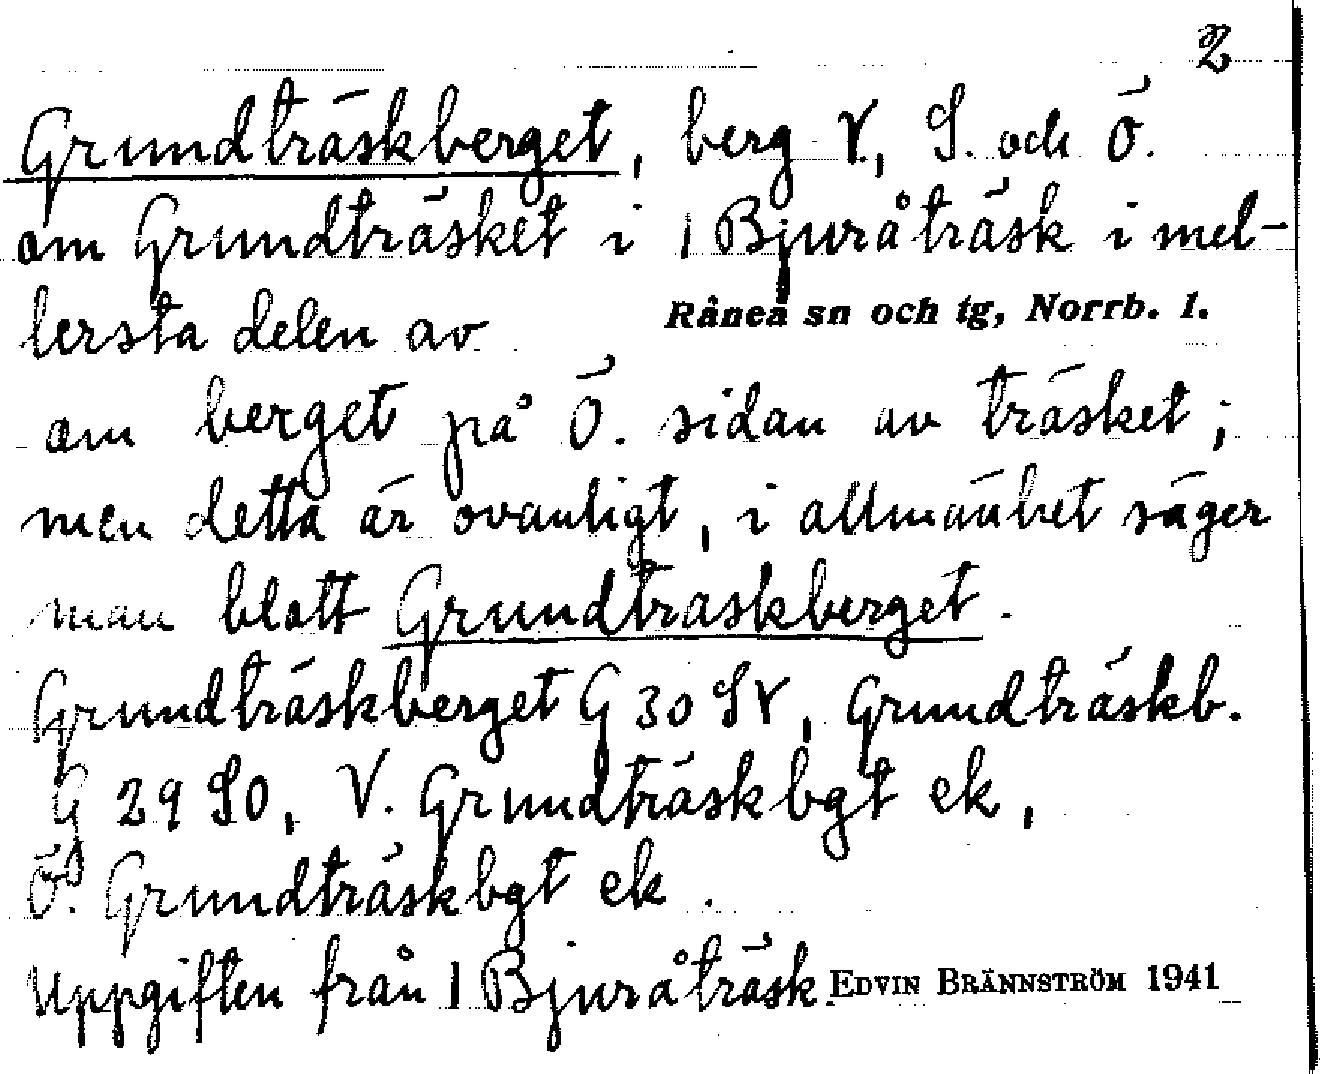 2
Grundträskberget, berg V., S. och Ö.
om Grundträsket i 1 Bjuråträsk i mel-
lersta delen av Råneå sn och tg, Norrb. l.
om berget på Ö. sidan av träsket;
men detta är ovanligt, i allmänhet säger
man blott Grundträskberget.
Grundträskberget G 30 SV, Grundträskb.
G 29 SO, V. Grundträskbgt ek,
Ö. Grundträskbgt ek.
Uppgiften från 1 Bjuråträsk. EDVIN BRÄNNSTRÖM 1941